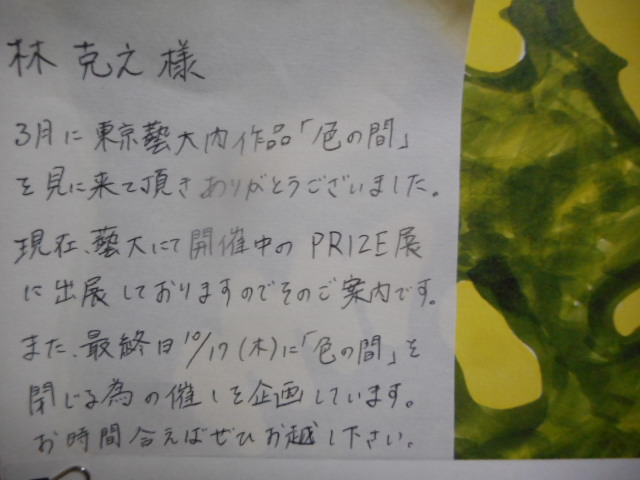 林 克之 様
3月に東京藝大内作品「色の間」
を見に来て頂きありがとうございました。
現在、藝大にて開催中のPRIZE展
に出展しておりますのでそのご案内です。
また、最終日10/17(木)に「色の間」を
閉じる為の催しを企画しています。
お時間合えばぜひお越し下さい。